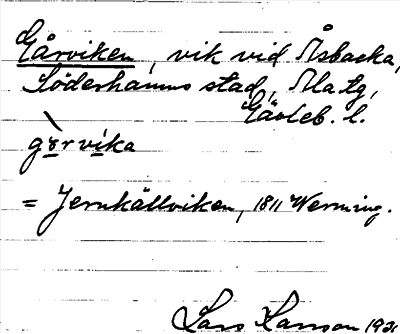 Gårviken, vik vid Åsbacka,
Söderhamns stad, Ala tg,
Gävleb. l.
gårvika
= Jernkällviken, 1811 Werming.
Lars Hanson 1921